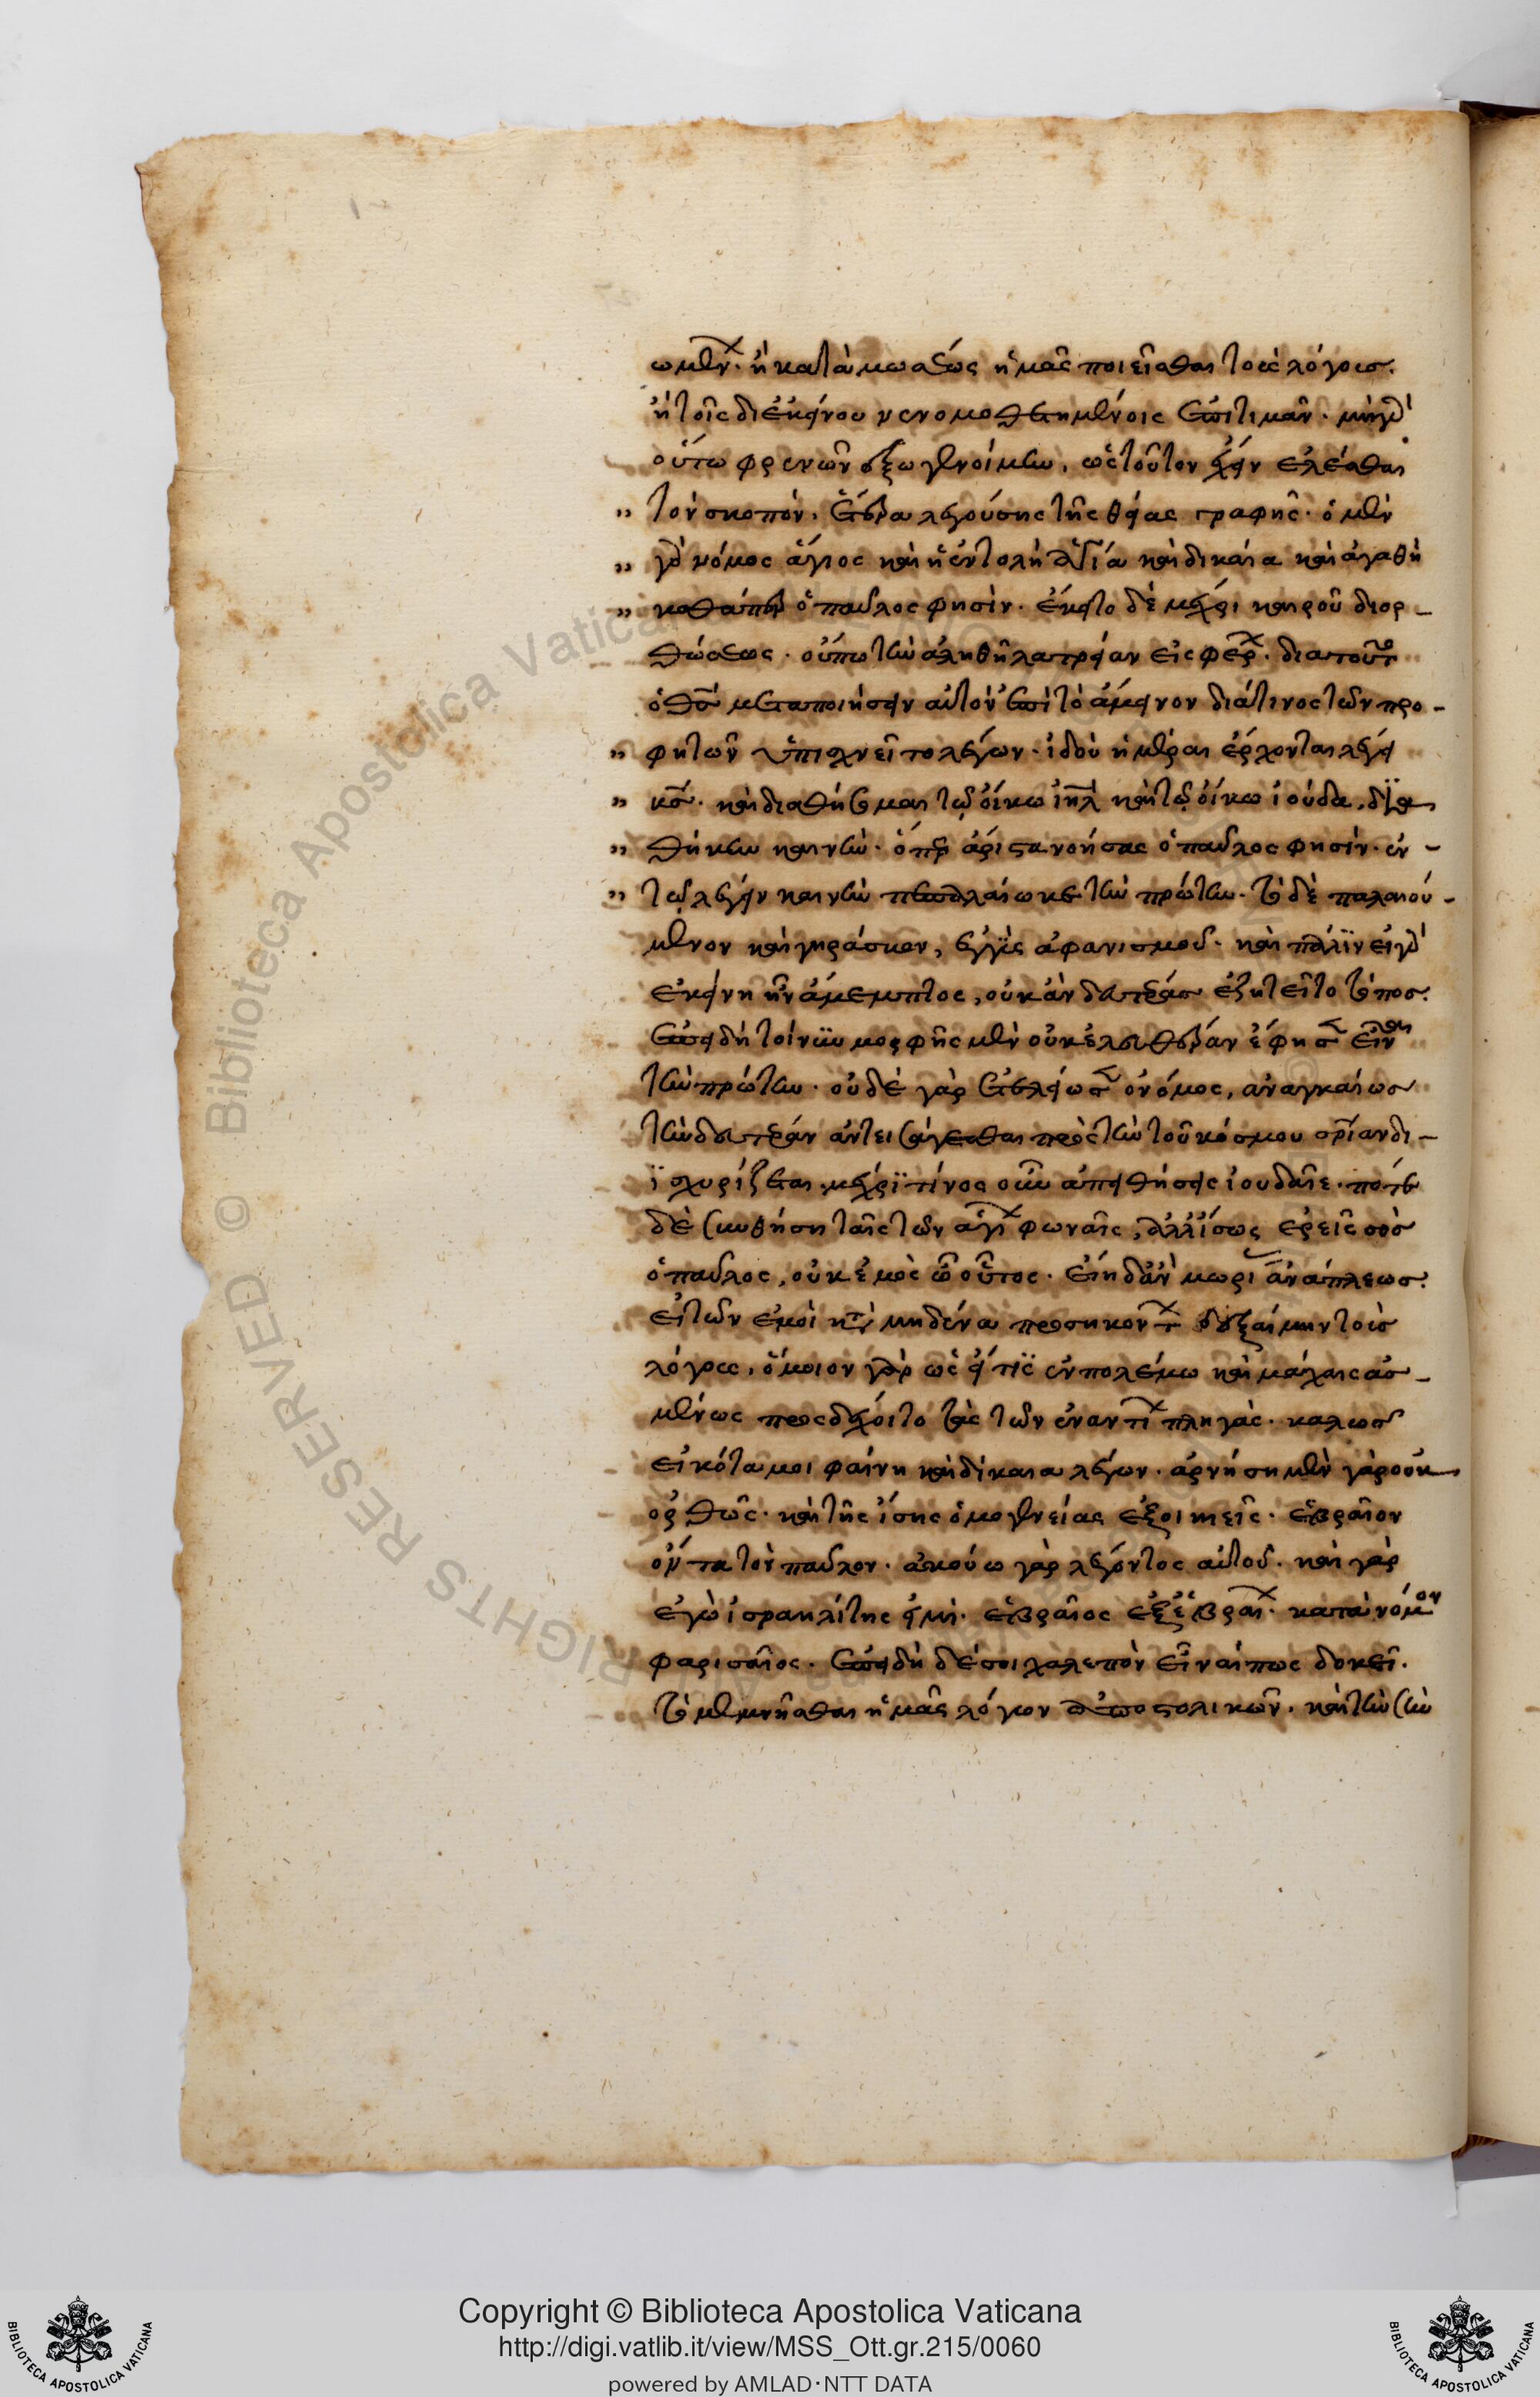 ωμένων. ἢ κατὰ μωσέως ἡμᾶς ποιεῖσθαι τοὺς λόγους.
ἢ τοῖς δι' ἐκείνου νενομοθετημένοις ἐπιτιμᾶν. μὴ γὰρ
οὕτω φρενῶν ἔξω γενοίμην, ὡς τοῦτον ἔχειν ἑλέσθαι
τὸν σκοπόν. λεγούσης τῆς θείας γραφῆς. ὁ μὲν
γὰρ νόμος ἅγιος καὶ ἡ ἐντολὴ ἁγία καὶ δικαία καὶ ἀγαθὴ
καθάπερ ὁ παῦλος φησίν. ἔκειτο δὲ μέχρι καιροῦ διορ-
θώσεως. οὔπω τὴν ἀληθῆ λατρείαν εἰσφέρων. διὰ τοῦτο
ὁ θεὸς μεταποιήσειν αὐτὸν ἐπὶ τὸ ἄμεινον διά τινος τῶν προ-
φητῶν ὑπισχνεῖτο λέγων. ἰδοὺ ἡμέραι ἔρχονται λέγει
κύριος. καὶ διαθήσομαι τῷ οἴκω ἰηλ καὶ τῷ οἴκω ἰούδα, δια
θήκην καινήν. ὅπερ ἄριστα νοήσας ὁ παῦλος φησίν. ἐν
τῷ λέγειν καινὴν πεπαλαίωκε τὴν πρώτην. τὸ δὲ παλαιού-
μενον καὶ γηράσκον, ἐγγὺς ἀφανισμοῦ. καὶ πάλιν εἰ γὰρ
ἐκείνη ἦν ἄμεμπτος, οὐκ ἂν δευτέρας ἐζητεῖτο τόπος.
ἐπειδὴ τοίνυν μορφῆς μὲν οὐκ ἐλευθέραν ἔφησεν εἶναι
τὴν πρώτην. οὐδὲ γὰρ ἐτελείωσεν ὁ νόμος, ἀναγκαίως
τὴν δευτέραν ἀντεισάγεσθαι πρὸς τὴν τοῦ κόσμου σωτηρίαν δι-
ϊσχυρίζεται. μέχρι τίνος οὖν ἀπειθήσεις ἰουδαῖε. πότε
δὲ συνθήση ταῖς τῶν ἁγίων φωναῖς, ἀλλ' ἴσως ἐρεῖς σὸς
ὁ παῦλος, οὐκ ἐμὸς οὗτος. εἴην δ' ἂν μωρίας ἀνάπλεως.
εἰ τῶν ἐμοὶ κατὰ μηδένα προσηκόντων δεξαίμην τοὺς
λόγους, ὅμοιον γὰρ ὡς εἴ τις ἐν πολέμω καὶ μάχαις ἀσ-
μένως προσδέχοιτο τὰς τῶν ἐναντίων πληγάς. καλῶς
εἰκότα μοι φαίνη καὶ δίκαια λέγων. ἀρνήση μὲν γὰρ οὐκ
ὀρθῶς. καὶ τῆς ἴσης ὁμογενείας ἐξοικιεῖς. ἑβραῖον
ὄντα τὸν παῦλον. ἀκούω γὰρ λέγοντος αὐτοῦ. καὶ γὰρ
ἐγὼ ἰσραηλίτης εἰμί. ἑβραῖος ἐξ ἑβραίων. κατὰ νόμον
φαρισαῖος. ἐπειδὴ δέ σοι χαλεπὸν εἶναί πως δοκεῖ.
τὸ μεμνῆσθαι ἡμᾶς λόγων ἀποστολικῶν. καὶ τὴν συν
Copyright © Biblioteca Apostolica Vaticana
http://digi.vatlib.it/view/MSS_Ott.gr.215/0060
powered by AMLAD·NTT DATA